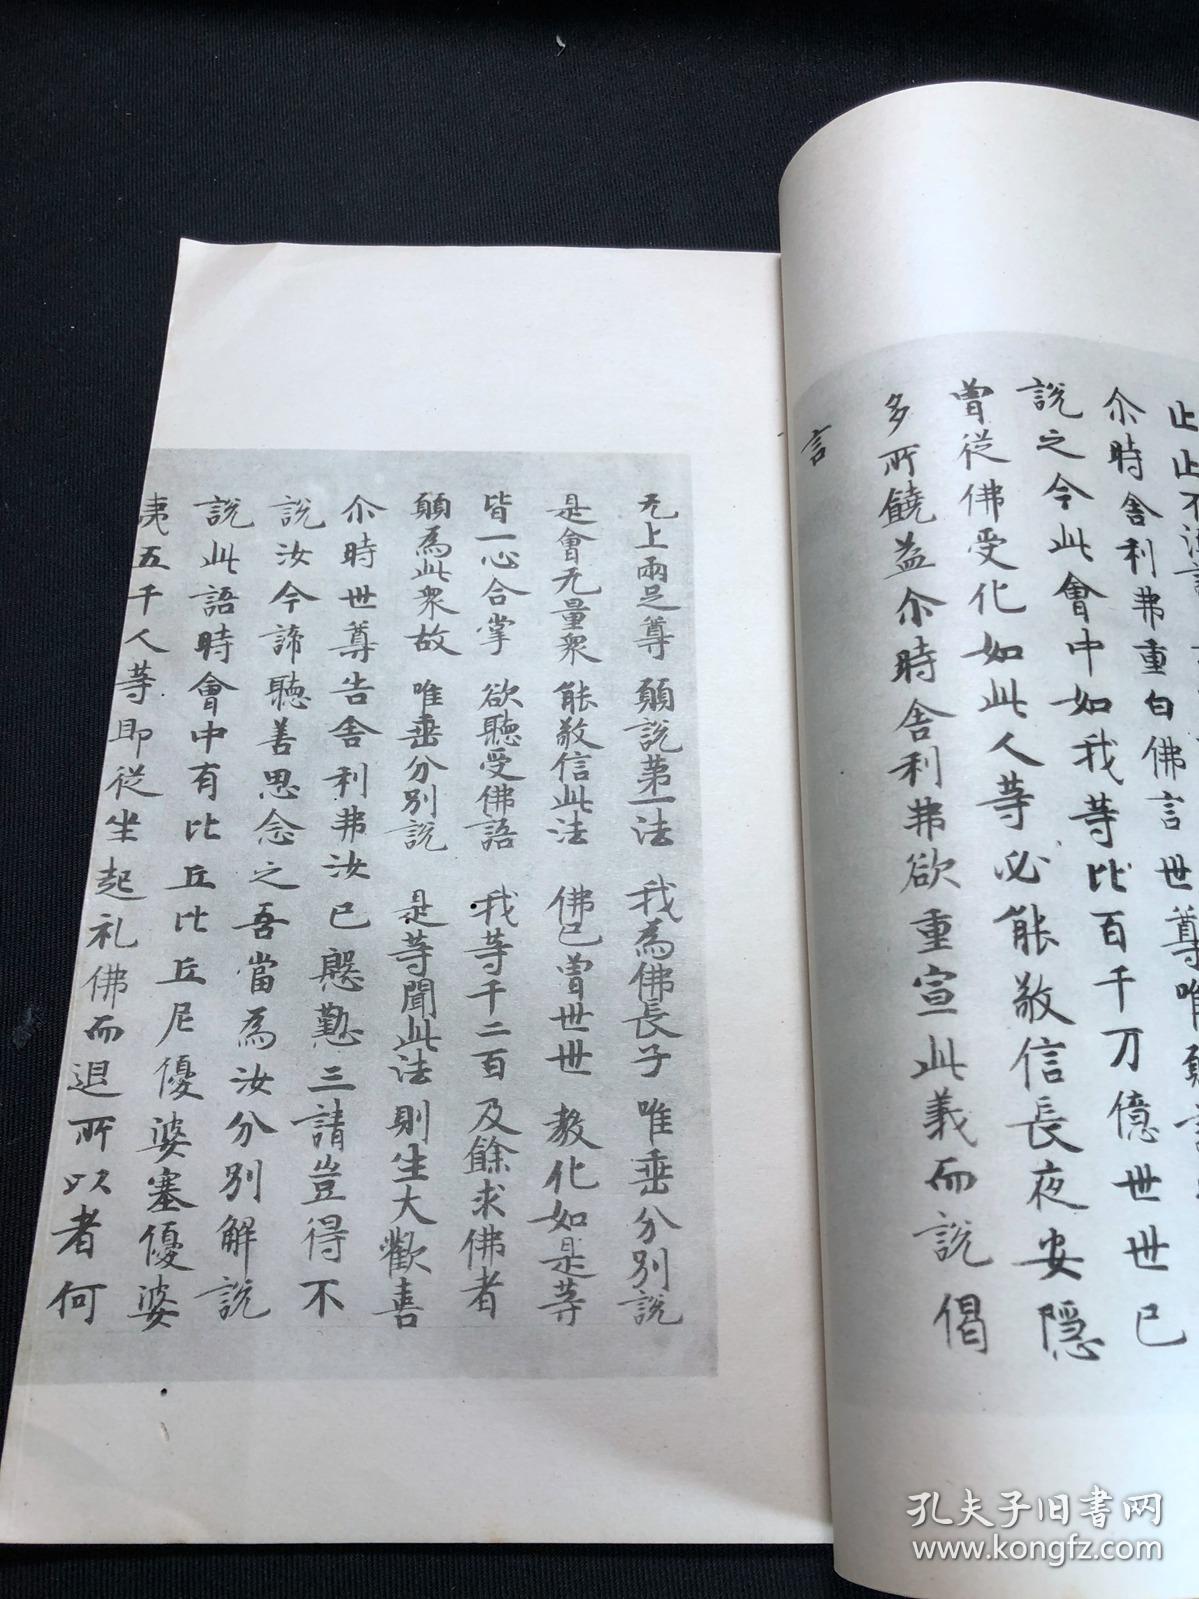 止止不須
尒時舍利弗重白佛言世尊唯願
說之今此會中如我等比百千万億世世已
曾從佛受化如此人等必能敬信長夜安隱
多所饒益尒時舍利弗欲重宣此義而說偈
言
无上兩足尊 願說第一法 我為佛長子 唯垂分別說
是會无量衆 能敬信此法 佛已曾世世 教化如是等
皆一心合掌 欲聽受佛語 我等千二百 及餘求佛者
願為此衆故 唯垂分別說 是等聞此法 則生大歡喜
尒時世尊告舍利弗汝已慇懃三請豈得不
說汝今諦聽善思念之吾當為汝分別解說
說此語時會中有比丘比丘尼優婆塞優婆
夷五千人等即從坐起礼佛而退所以者何
孔夫子旧书网
www.kongfz.com